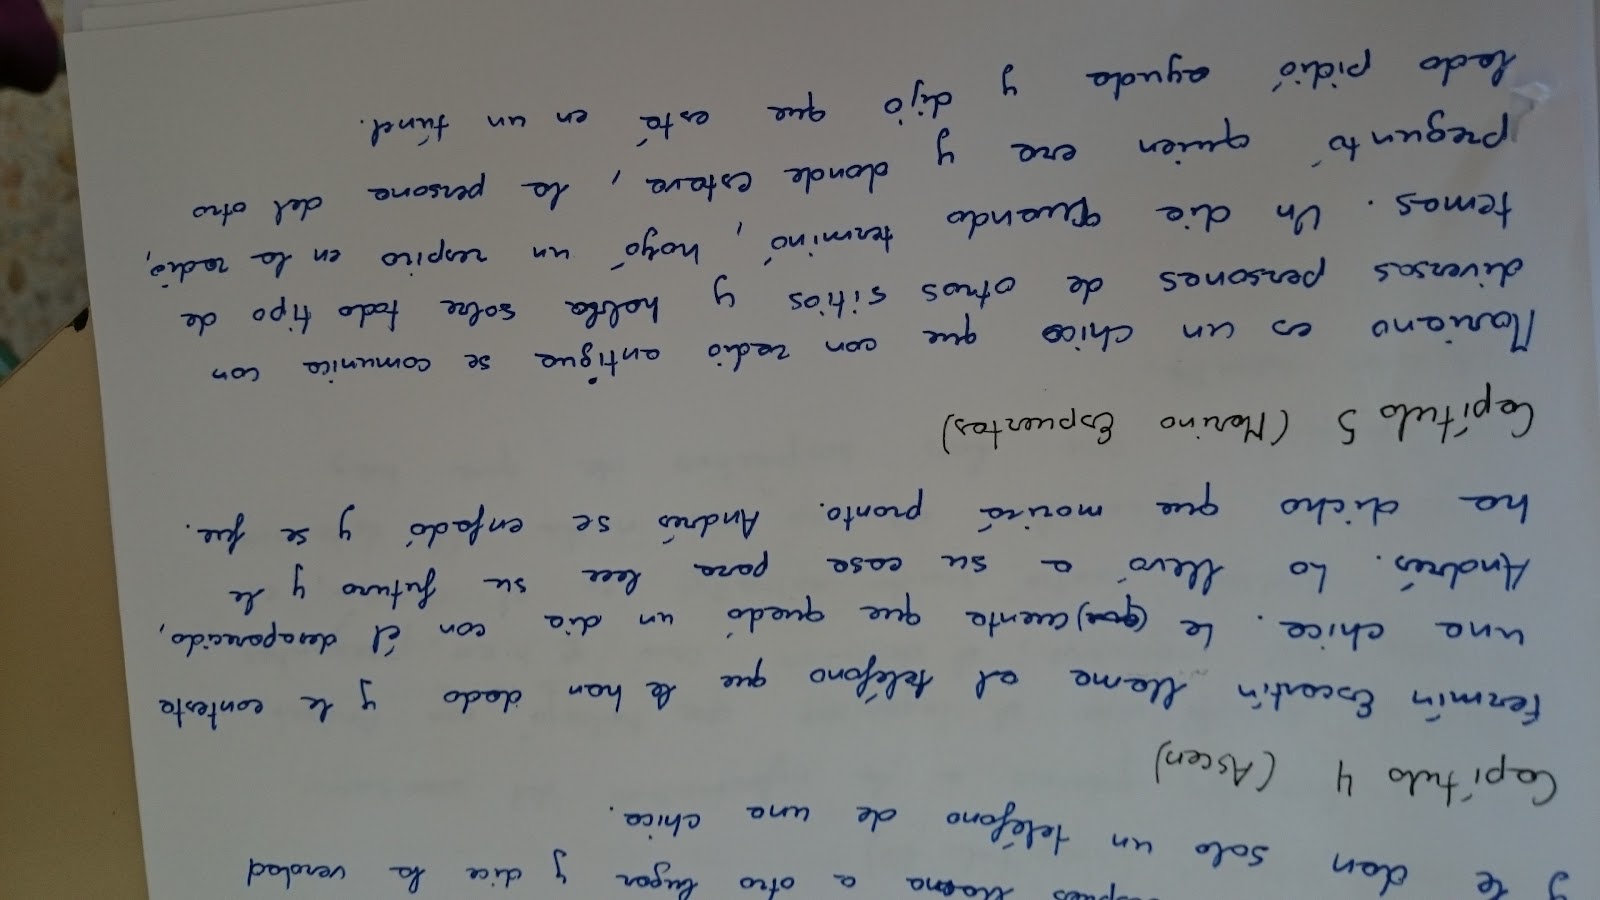 llama a otro lugar y dice la verdad
y le dan solo un teléfono de una chica.
Capítulo 4 (Ascen)
Fermín Escartín llama al teléfono que le han dado y le contesta
una chica. Le (que) cuenta que quedó un dia con él desaparecido,
Andrés. Lo llevó a su casa para leer su futuro y le
ha dicho que morirá pronto. Andrés se enfadó y se fue.
Capítulo 5 (Marino Espuertas)
Mariano es un chico que con radio antigua se comunica con
diversas persones de otros sitios y habla sobre todo tipo de
temas. Un dia quando terminó, hoyó un respiro en la radio,
preguntó quien era y donde estava, la persona del otro
lado pidió ayuda y dijó que está en un túnel.